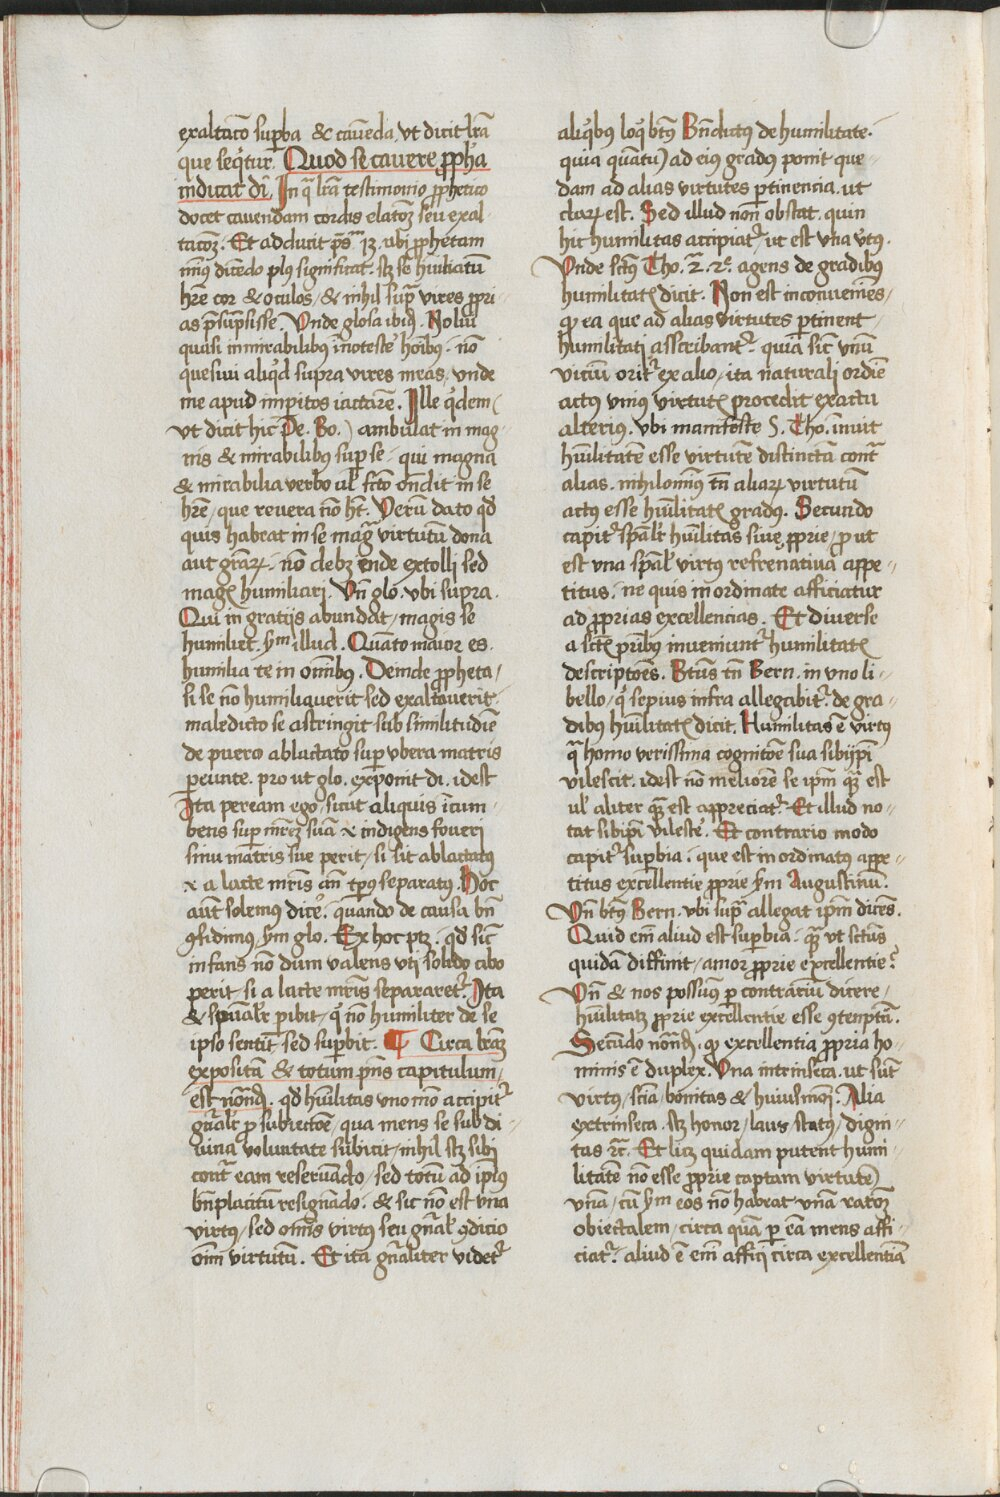 exaltac̄o sup̱ba & cauēda, vt dicit lr̄a
que seq̄tur. Quod se cauere ꝓph̄a
indicat dī. In q̄ lr̄a testimonio ꝓphetico
docet cauendam cordis elatōꝫ seu exal-
tacōꝫ. Et adducit ps̄ ubi ꝓphetam
minꝰ dicēdo plꝰ significat. stꝫ se hūiliatū
hr̄e cor & oculos, & nihil sup̄ vires ꝓpri-
as p̄sūpsisse. Vnde glosa ibid̄. Nolui
quasi in mirabilibꝰ inotesc̄e hoībꝰ. nō
quesiui aliq̇d supra vires meas, vnde
me apud imp̱itos iactarē. Ille q̇dem (
vt dicit hic Pe. Bo.) ambulat in mag-
nis & mirabilibꝰ sup̱ se. qui magna
& mirabilia verbo ul̄ fc̄to on̄dit in se
hr̄e, que reuera nō hꝫ̄. Verū dato qd̄
quis habeat in se maḡ virtutū dona
aut gr̄aꝝ. nō debꝫ ende extolli sed
magꝭ humiliari. Vn̄ glo. vbi supra.
Qui in gratijs abundat, magis se
humiliet. s̄m illud. Quāto maior es
humilia te in omībꝰ. Deinde ꝓpheta,
si se nō humiliauerit sed exaltauerit
maledicto se astringit sub similitudīe
de puero ablactato sup̱ vbera matris
p̱eunte. pro ut glo. exponit dī. idest
Ita peream ego, sicut aliquis īcum-
bens sup̱ mr̄eꝫ suā & indigens foueri
sinu matris sue perit, si sit ablactatꝰ
& a lacte mr̄is an̄ tp̱ꝰ separatꝰ. Hoc
aūt solemꝰ dic̄e. quando de causa bn̄
ꝯfidimꝰ, s̄m glo. Ex hoc ptꝫ. qd̄ sic̄
infans nō dum valens vti solido cibo
p̱erit, si a lacte mr̄is separaretᷣ. Ita
& sp̄ual̄r p̱ibit, q̇ nō humiliter de se
ipso sentit sed sup̱bit. ¶ Circa lr̄aꝫ
expositā & totum pn̄s capitulum,
est nōnd̄. qd̄ hūilitas uno mō accipitᷣ
gn̄al̄r ꝓ subiectōe, qua mens se sub di-
uina voluntate subicit. nihil stꝫ sibi
cont̄ eam reseruādo, sed totū ad ip̄iꝰ
bn̄placitū resignādo. & sic nō est vna
virtꝰ, sed om̄is virtꝰ seu gn̄al̄ ꝯdicio
oīm virtutū. Et ita gn̄aliter videtᷣ
aliq̇bꝰ loq̇ btꝰ Bn̄dictꝰ de humilitate.
quia quātū) ad eiꝰ gradꝰ ponit que-
dam ad alias virtutes p̱tinencia. ut
claꝝ est. Sed illud nō obstat. quin
hic humilitas accipiatᷣ, ut est vna v̄tꝰ.
Vnde sctꝰ Tho. 2ᵃ. 2ᵉ. agens de gradibꝰ
humilitatꝭ dicit. Non est inconueniēs,
ꝙ ea que ad alias virtutes p̱tinent,
humilitati asscribantᷣ. quia sic̄ vnū
viciū oritᷣ ex alio, ita naturali ordīe
actꝰ vniꝰ virtutꝭ procedit ex actu
alteriꝰ. Vbi manifeste S. Tho. inuit
hūilitatē esse virtutē distinctā cont̄
alias. nihilominꝰ tn̄ aliaꝝ virtutū
actꝰ esse hūilitatꝭ gradꝰ. Secundo
capitᷣ sp̄al̄r hūilitas siue ꝓprie, pro ut
est vna sp̄al̄ virtꝰ refrenatiua appe-
titus. ne quis inordinate afficiatur
ad ꝓprias excellencias. Et diuerse
a sctꝭ pr̄ibꝰ inueniuntᷣ humilitatꝭ
descriptōes. Btūs tn̄ Bern. in vno li-
bello, q̇ sepius infra allegabitᷣ. de gra-
dibꝰ hūilitatꝭ dicit. Humilitas ē virtꝰ
q̄ homo verissima cognitōe sua sibijp̄i
vilescit. idest nō meliorē se ip̄m qᷓꝫ est
ul̄ aliter qᷓꝫ est appreciatᷣ. Et illud no-
tat sibip̄i vilesc̄e. Et contrario modo
capitᷣ sup̱bia. que est inordinatꝰ appe-
titus excellentie ꝓprie s̄m Augustinū.
Vn̄ btꝰ Bern. vbi sup̄ allegat ip̄m dicēs.
Quid em̄ aliud est sup̱bia. qᷓꝫ vt sctūs
quidā diffinit, amor ꝓprie excellentie?
Vn̄ & nos possumꝰ p̱ contrariū dicere,
hūilitatꝫ ꝓprie excellentie esse ꝯtenptū.
Secūdo nōnd̄. ꝙ excellentia ꝓpria ho-
minis ē duplex. Vna intrinseca. ut sūt
virtꝰ, scīa, bonitas & huiusmōi. Alia
extrinseca. stꝫ honor, laus, statꝰ, digni-
tas ꝛc̄. Et licꝫ quidam putent humi-
litatē nō esse ꝓprie captam virtutē
vnā, cū s̄m eos nō habeat vnā ratōꝫ
obiectalem, circa quā p̱ eā mens affi-
ciatᷣ. aliud ē em̄ affici circa excellentiā